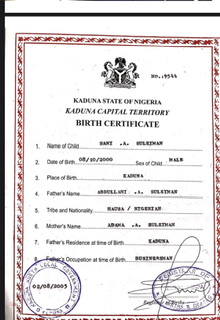 NO. 9544
KADUNA STATE OF NIGERIA
KADUNA CAPITAL TERRITORY
BIRTH CERTIFICATE
1. Name of Child SANI .A. SULEIMAN
2. Date of Birth 08/10/2000 Sex of Child MALE
3. Place of Birth KADUNA
4. Father's Name ABDULLAHI .A. SULEIMAN
5. Tribe and Nationality HAUSA / NIGERIAN
6. Mother's Name ADAMA .A. SULEIMAN
7. Father's Residence at time of Birth KADUNA
8. Father's Occupation at time of Birth BUSINESSMAN
02/08/2005